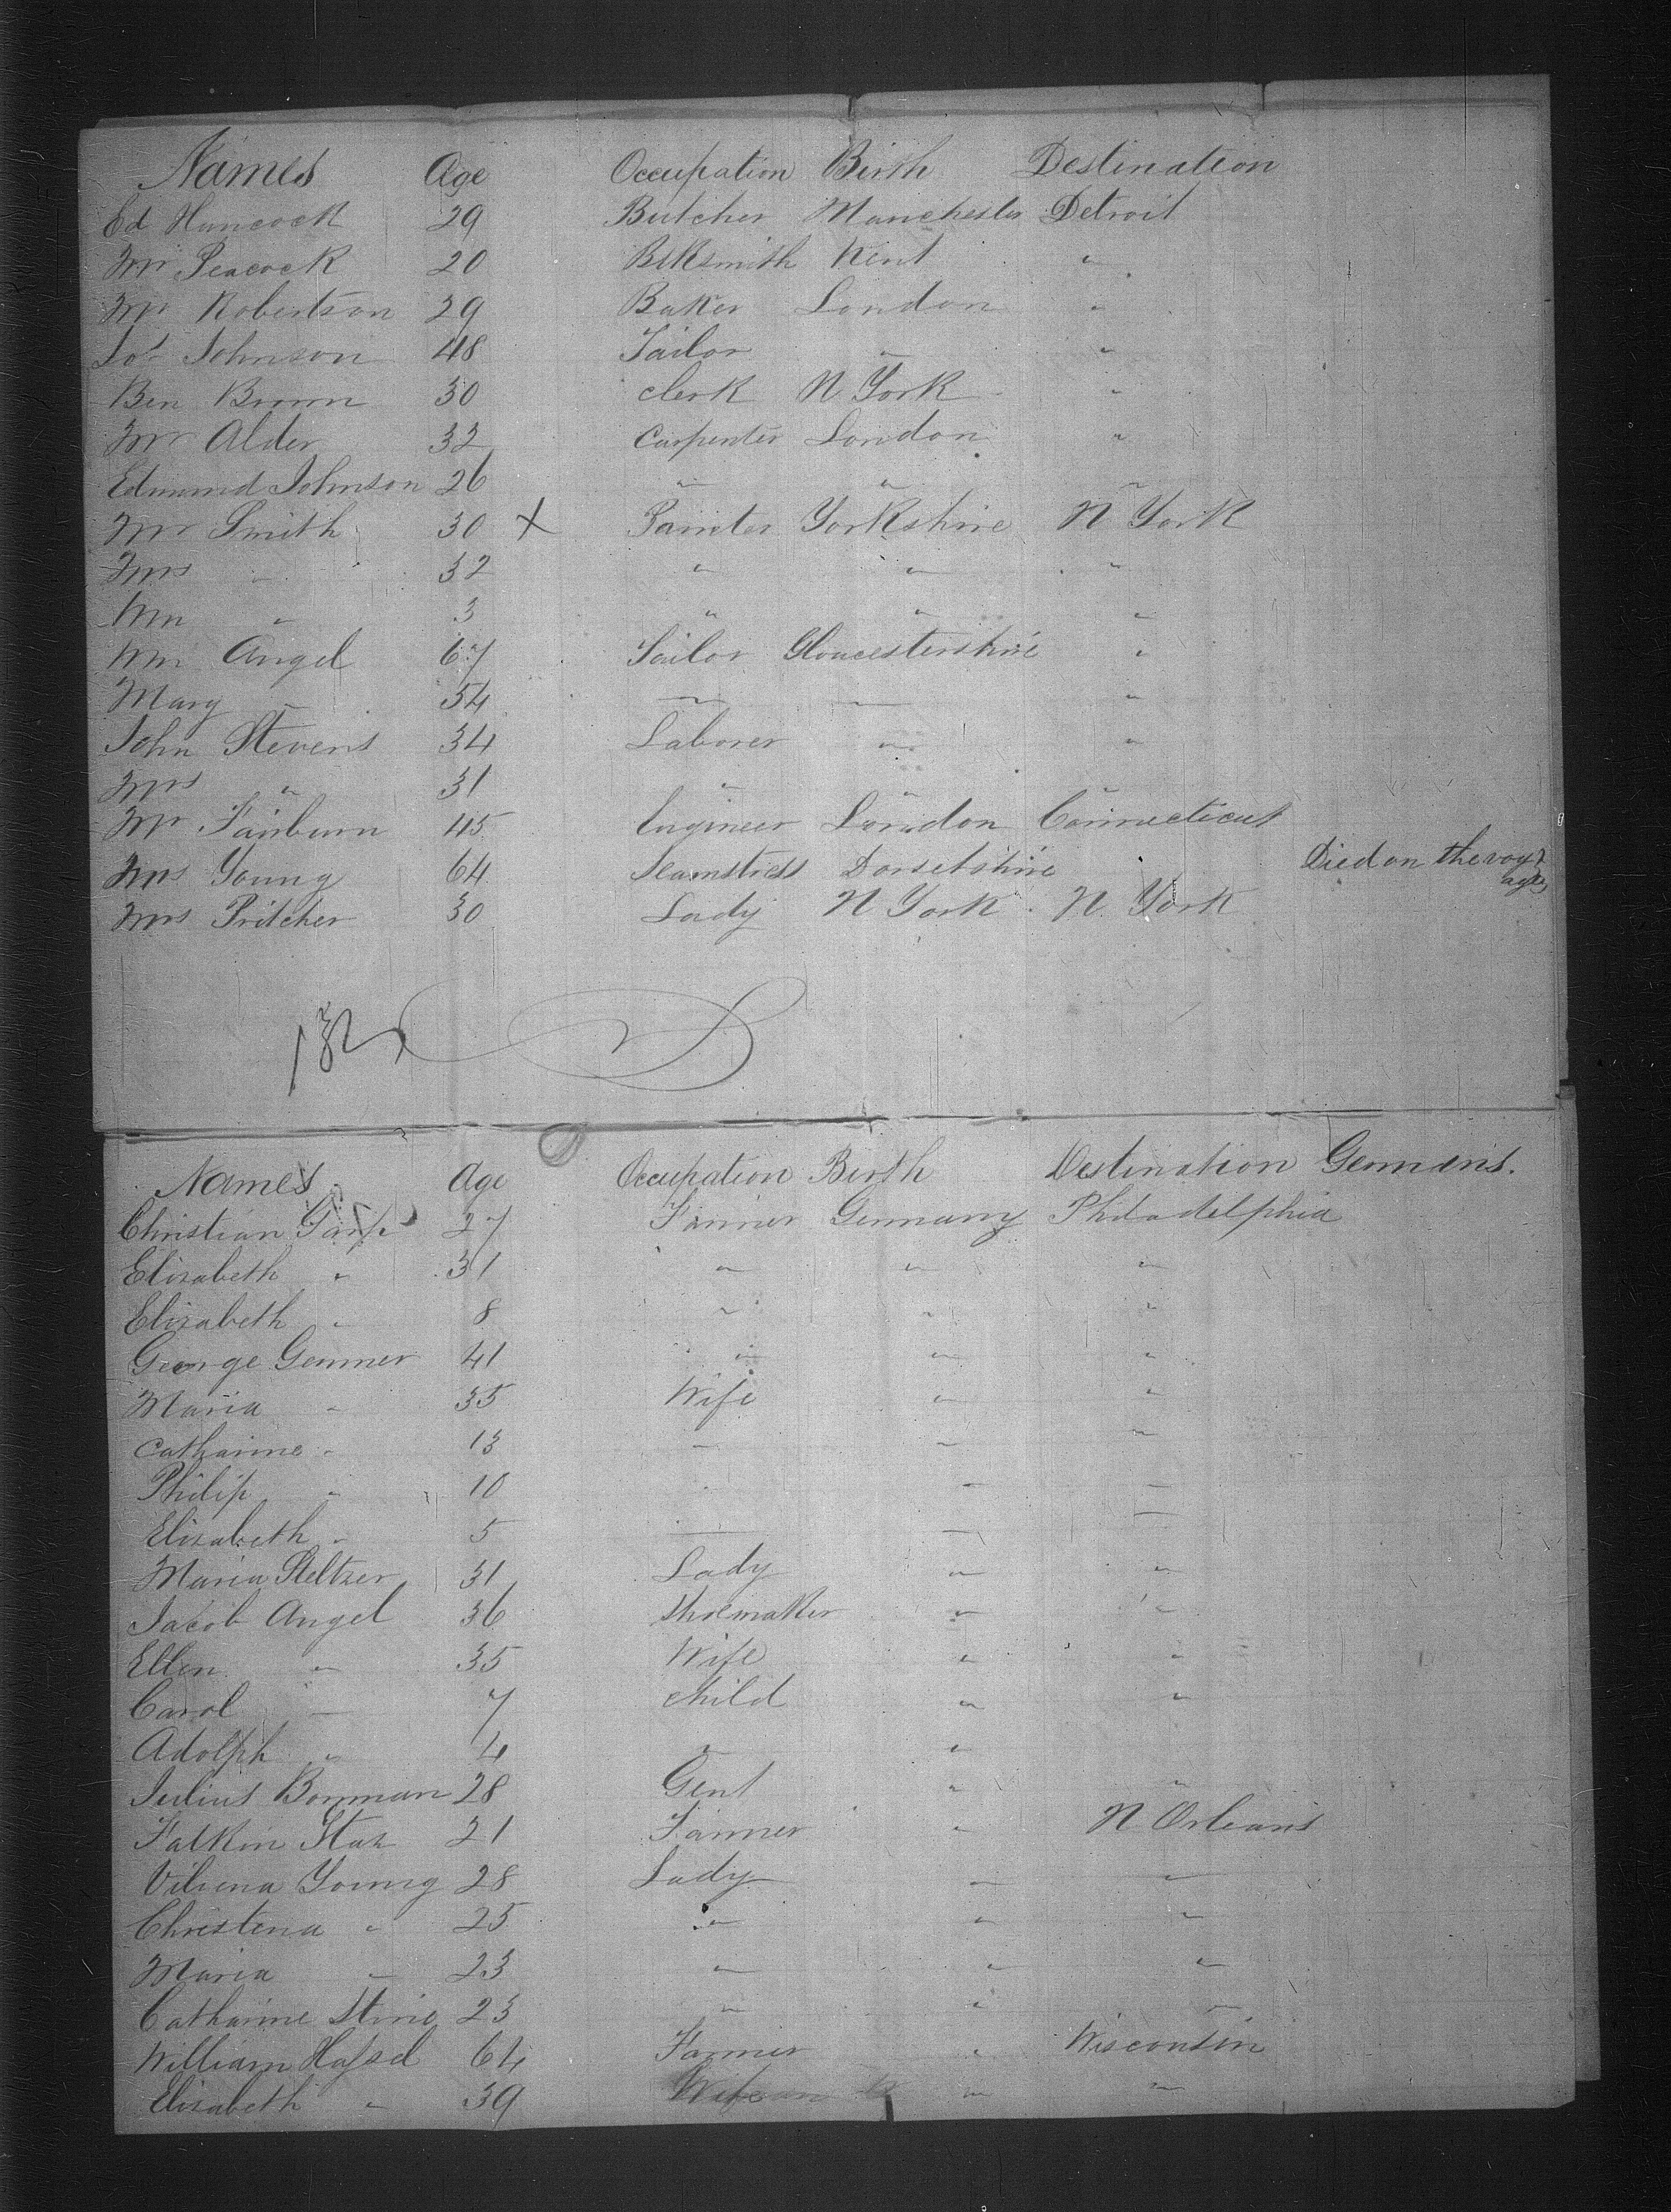 Names Age Occupation Birth Destination
Ed Hancock 29 Butcher Manchester Detroit
Mr Peacock 20 Blksmith Kent "
Mr Robertson 29 Baker London "
Johnson 48 Tailor " "
Ben Brown 30 clerk N York "
Mr Alder 32 Carpenter London "
Edmund Johnson 26 " " "
Mr Smith 30 X Painter Yorkshire N York
Mrs " 32 " " "
Wm " 3 " " "
Wm Angel 67 Sailor Gloucestershire "
Mary " 54 " " "
John Stevens 34 Laborer " "
Mrs " 31 " " "
Mr Fairburn 45 Engineer London Connecticut
Mrs Young 64 Seamstress Dorsetshire Died on the voy
age
Mrs Pritcher 30 Lady N York N. York
132
Names Age Occupation Birth Destination Germans.
Christian 27 Farmer Germany Philadelphia
Elizabeth " 31 " " "
Elizabeth " 8 " " "
George Gemmer 41 " " "
Maria " 35 Wife " "
Catharine " 13 " " "
Philip " 10 " " "
Elizabeth " 5 " " "
Maria Steltzer 31 Lady " "
Jacob Angel 36 Shoemaker " "
Ellen " 35 Wife " "
Carol " 7 child " "
Adolph " 4 " "
Julius Bornman 28 Gent " "
21 Farmer " N Orleans
Young 28 Lady " "
Christena " 25 " " "
Maria " 23 " " "
Catharine Stine 23 " " "
William 64 Farmer " Wisconsin
Elizabeth " 39 Wife " "